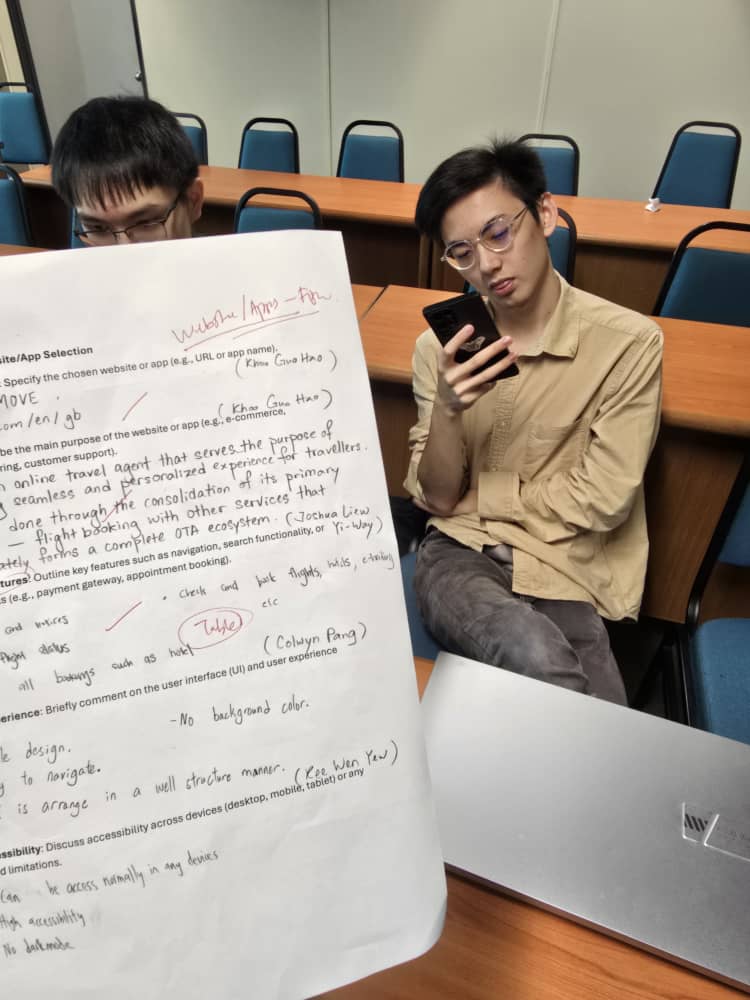 Website/Apps -
site/App Selection
: Specify the chosen website or app (e.g., URL or app name).
(Khoo Guo Hao)
MOVE
com/en/gb
(Khoo Guo Hao)
be the main purpose of the website or app (e.g., e-commerce,
ring, customer support).
online travel agent that serves the purpose of
seamless and personalized experience for travellers.
done through the consolidation of its primary
— flight booking with other services that
ately forms a complete OTA ecosystem. (Joshua Liew
Yi-Way)
tures: Outline key features such as navigation, search functionality, or
s (e.g., payment gateway, appointment booking).
• check and book flights, hotels,
etc
and invoices
flight status
Table
all bookings such as hotel
(Colwyn Pang)
erience: Briefly comment on the user interface (UI) and user experience
-No background color.
le design.
y to navigate.
is arrange in a well structure manner. (Kee Wen Yew)
ssibility: Discuss accessibility across devices (desktop, mobile, tablet) or any
d limitations.
Can be access normally in any devices
High accessibility
No darkmode